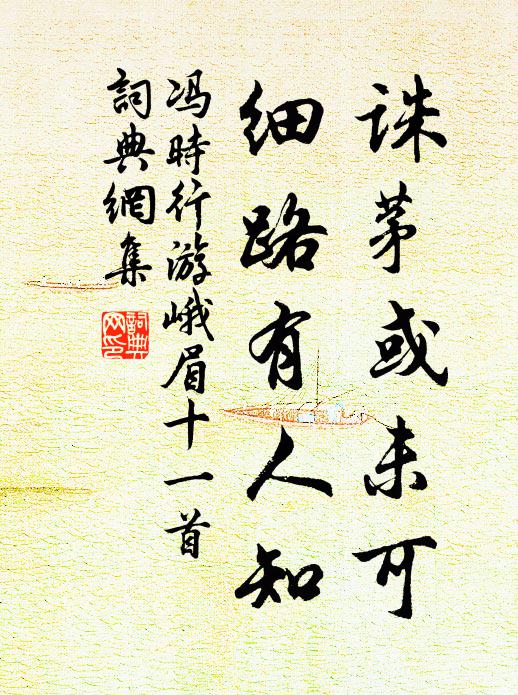 誅茅或未可
细路有人知
冯時行游峨眉十一首
詞典網集
詞典網印